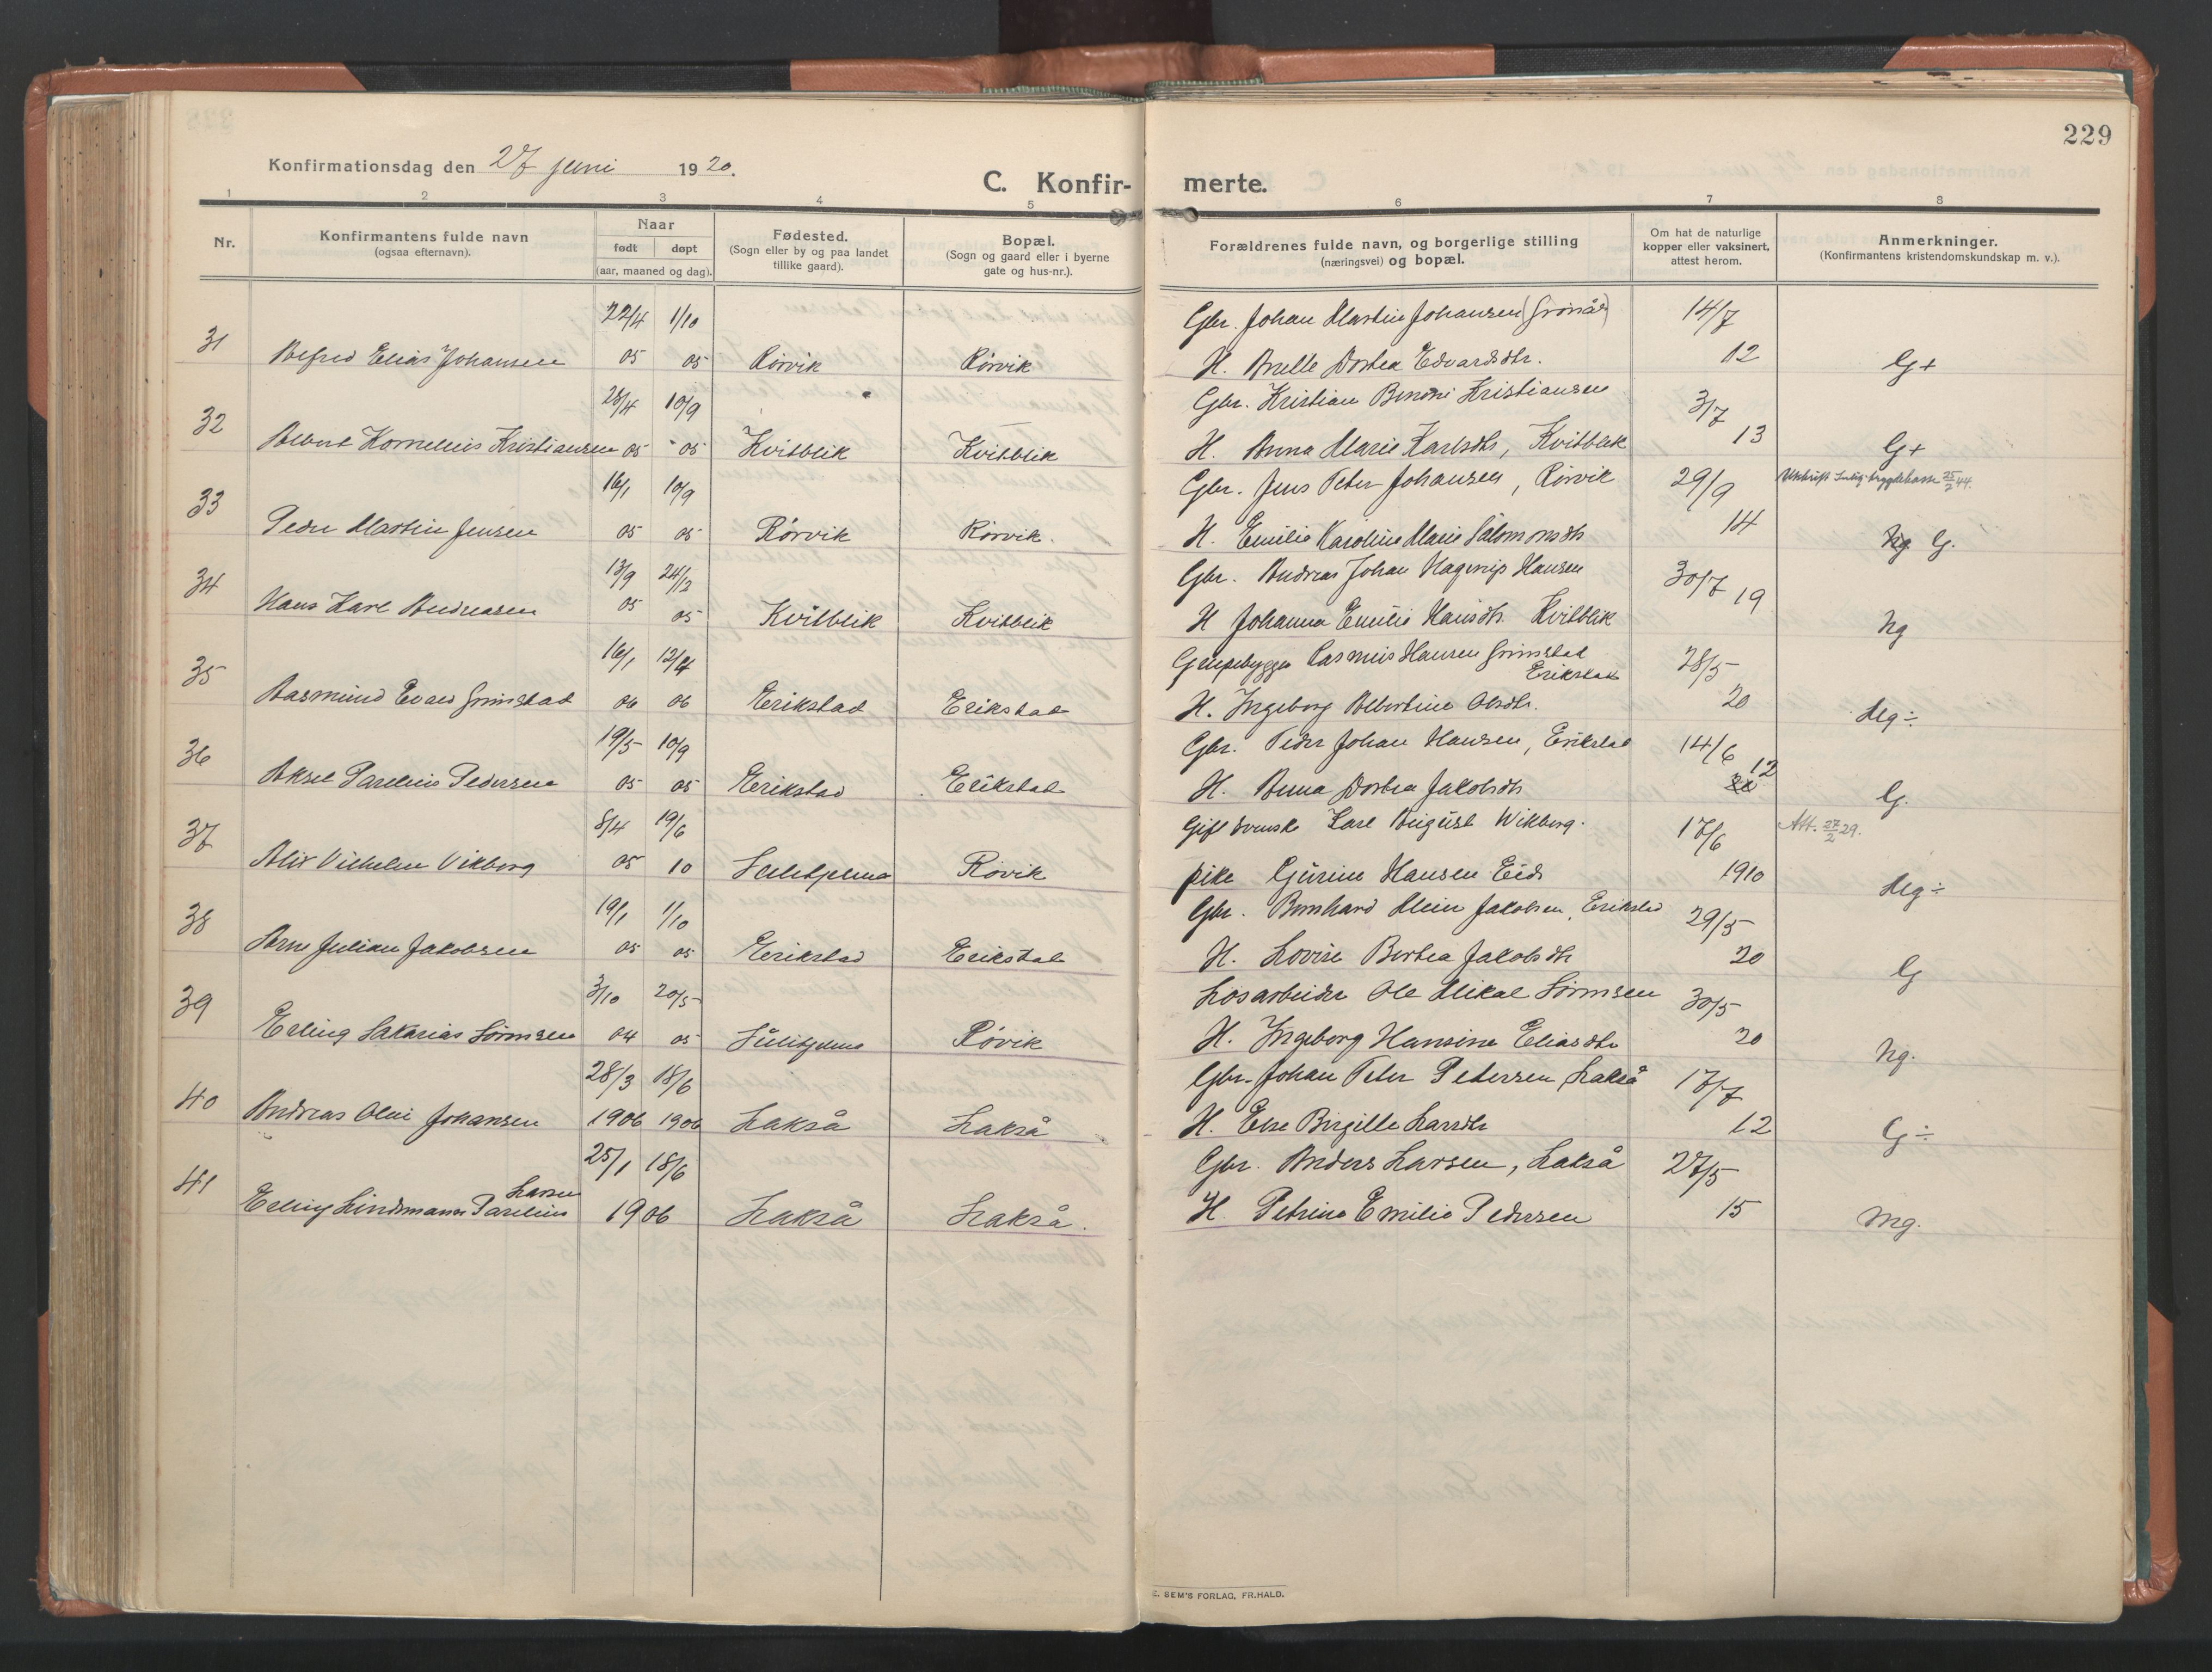 229
Konfirmationsdag den 27 juni 1920.
C. Konfir- merte.
1 2 3 4 5 6 7 8
Nr.
Konfirmantens fulde navn
(ogsaa efternavn).
Naar
født døpt
(aar, maaned og dag).
Fødested.
(Sogn eller by og paa landet
tillike gaard).
Bopæl.
(Sogn og gaard eller i byerne
gate og hus-nr.).
Forældrenes fulde navn, og borgerlige stilling
(næringsvei) og bopæl.
Om hat de naturlige
kopper eller vaksinert,
attest herom.
Anmerkninger.
(Konfirmantens kristendomskundskap m. v.).
22/4 1/10 Gbr. Johan Martin Johansen 14/7
31 Alfred Elias Johansen 05 05 Rörvik Rörvik H. Dortea Edvardsdtr. 12 G+
28/4 10/9 Gbr. Kristian Benoni Kristiansen 3/7
32 Albert Kornelius Kristiansen 05 05 Kvitblik Kvitblik H. Anna Marie Karlsdtr, Kvitblik 13 G+
16/1 10/9 Gbr. Jens Peter Johansen, Rörvik 29/9 25/2 44.
33 Peder Martin Jensen 05 05 Rörvik Rörvik. H. Emilie Karoline Marie Salomonsdtr 14 Ng G.
13/9 24/12 Gbr. Andreas Johan Hagerup Hansen 30/7
34 Hans Karl Andreasen 05 05 Kvitblik Kvitblik H Johanna Emilie Hansdtr. Kvitblik 19 Ng
16/1 12/4 Rasmus Hansen Grimstad 28/5
Erikstad
35 Aasmund Edvard Grimstad 06 06 Erikstad Erikstad H. Ingeborg Albertine Olsdtr. 20 Mg÷
19/5 10/9 Gbr. Peder Johan Hansen, Erikstad 14/6
36 Aksel Parelius Pedersen 05 05 Erikstad Erikstad H. Anna Dortea Jakobsdtr 12 G.
8/4 19/6 Gift svensk Karl August Wikberg. 17/6 Att. 27/2 29.
37 Alix Vilhelm Vikberg 05 10 Sulitjelma Røvik pike Gurine Hansen Eids 1910 Mg÷
19/1 1/10 Gbr. Bernhard Klein Jakobsen, Erikstad 29/5
38 Arne Julian Jakobsen 05 05 Erikstad Erikstad H. Lovise Bertea Jakobsdtr 20 G
3/10 20/5 Løsarbeider Ole Mikal Sörensen 30/5
39 Erling Sakarias Sörensen 04 05 Sulitjelma Røvik H. Ingeborg Hansine Eliasdtr 20 Ng.
28/3 18/6 Gbr. Johan Peter Pedersen, Lakså 17/7
40 Andreas Olai Johansen 1906 1906 Lakså Lakså H. Else Birgitte Larsdtr 12 G÷
25/1 18/6 Gbr. Anders Larsen, Lakså 27/5
Larsen
41 Erling Lindemann Parelius 1906 Lakså Lakså. H Petrine Emilie Pedersen 15 Mg.
E. SEM'S FORLAG, FR.HALD.